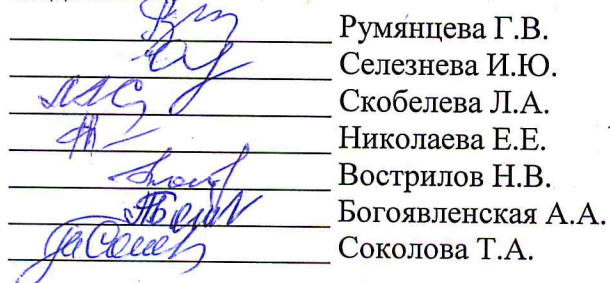 Румянцева Г.В.
Селезнева И.Ю.
Скобелева Л.А.
Николаева Е.Е.
Вострилов Н.В.
Богоявленская А.А.
Соколова Т.А.